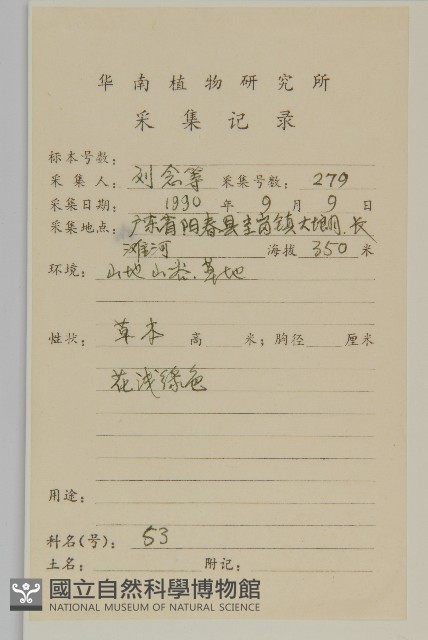 华南植物研究所
采集记录
标本号数：
采集人：刘念等 采集号数：279
采集日期：1990年9月9日
采集地点：广东省阳春县圭岗镇大朗，长
滩河 海拔350米
环境：山地山谷，草地
性状：草本 高 米；胸径 厘米
花浅绿色
用途：
科名(号)：53
土名： 附记：
國立自然科學博物館
NATIONAL MUSEUM OF NATURAL SCIENCE